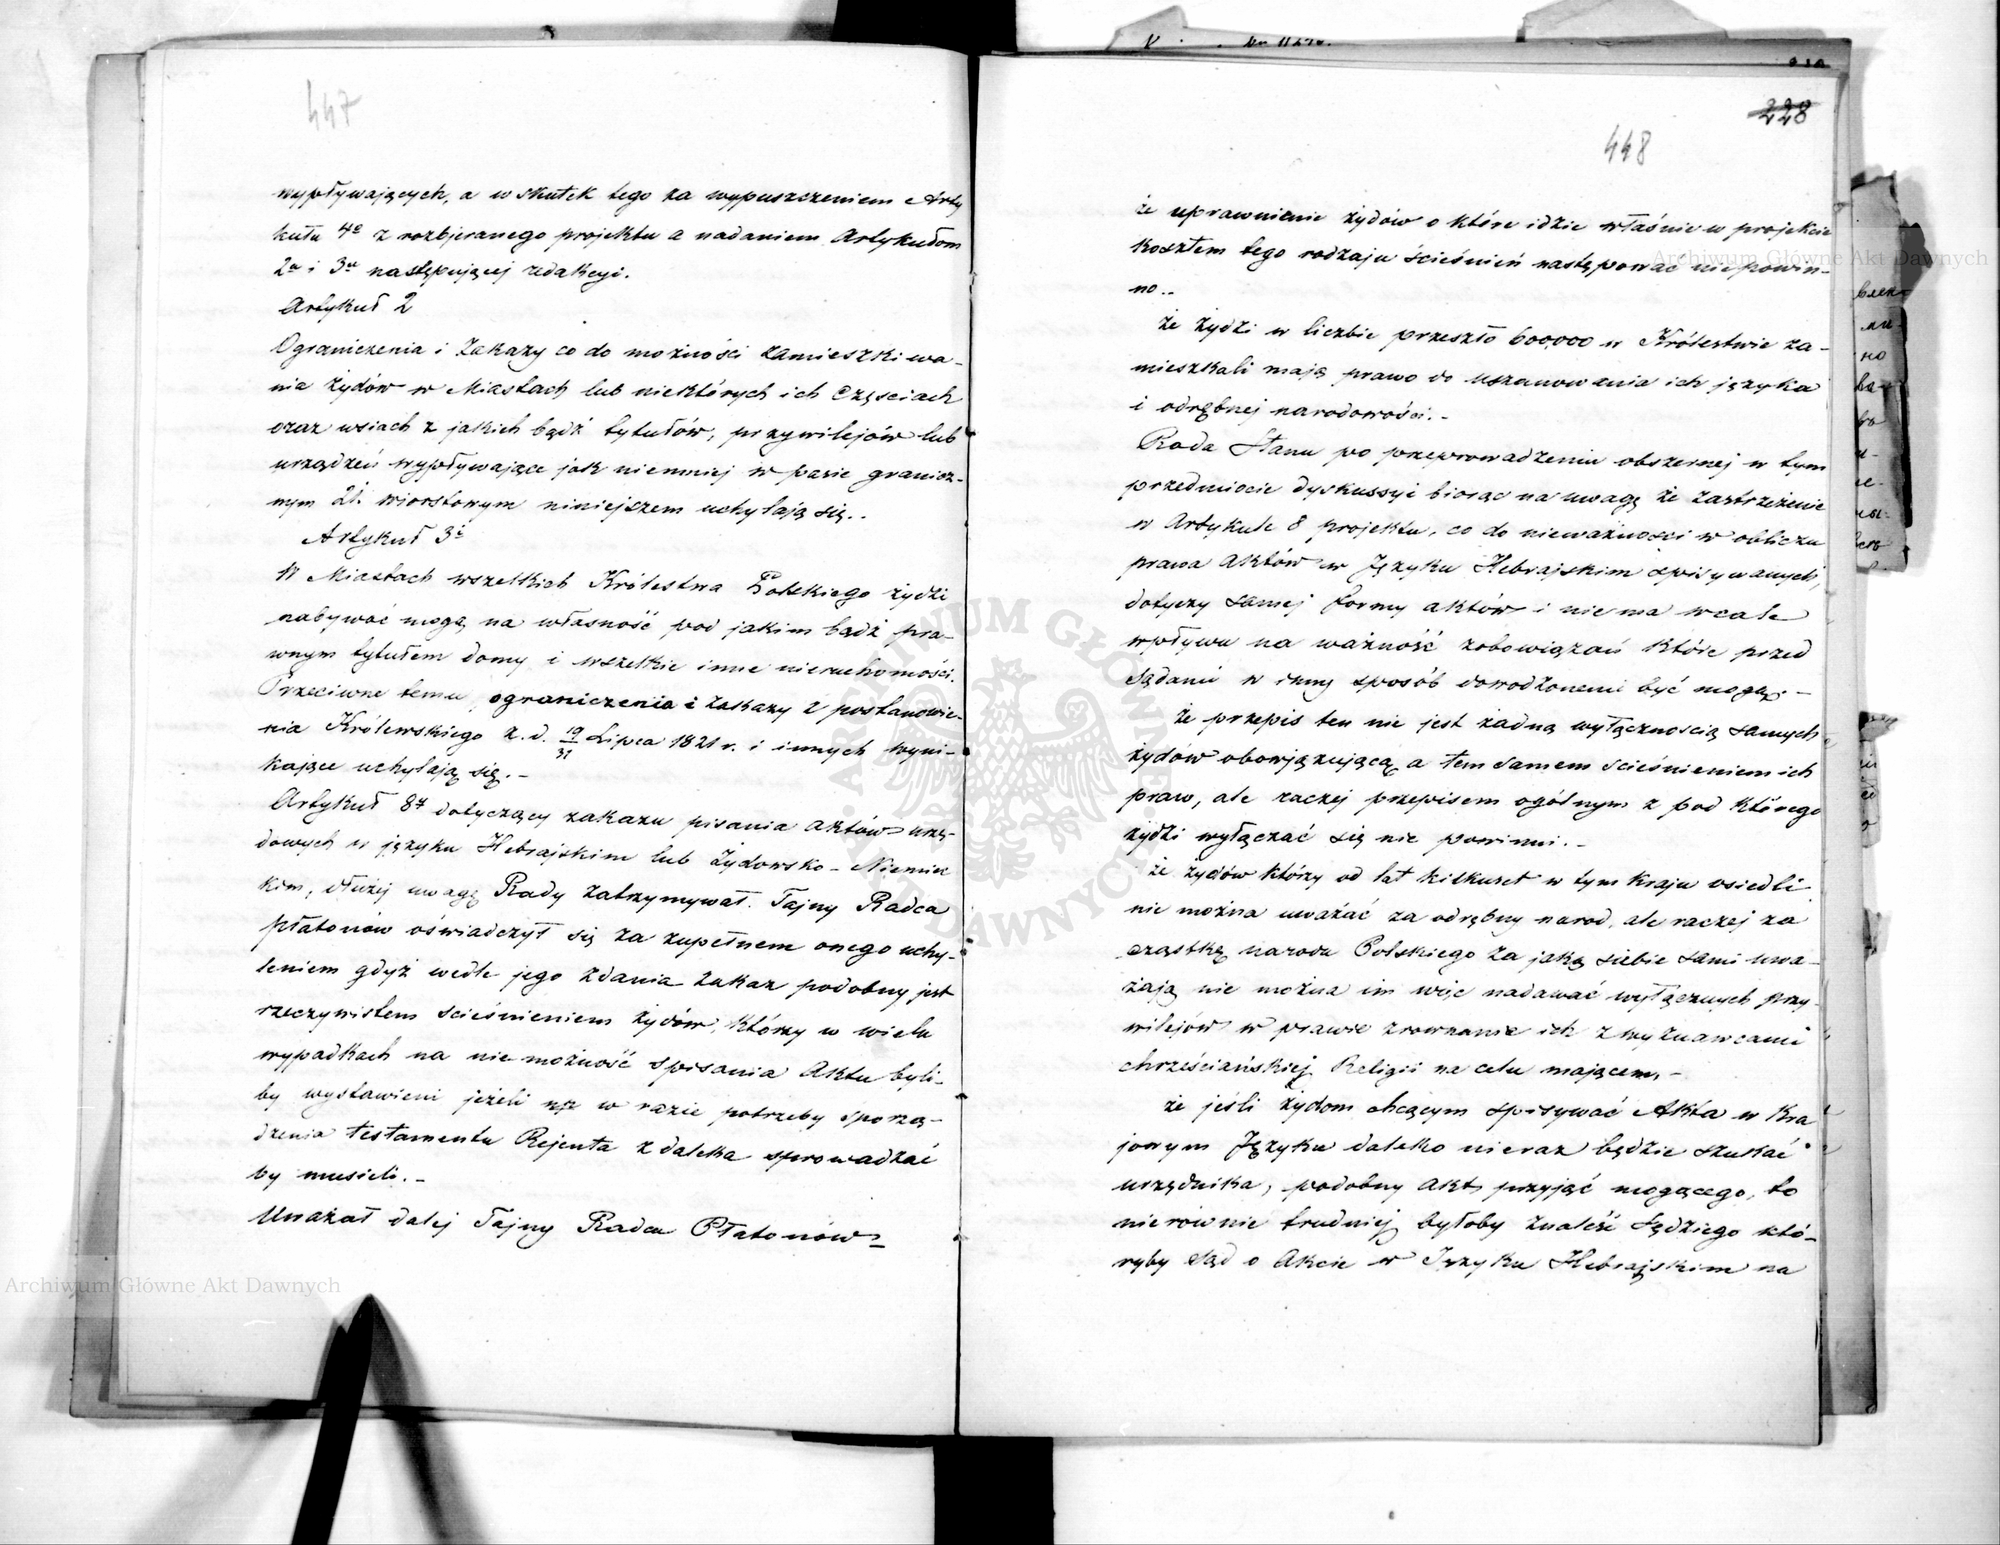 447
wypływających, a w skutek tego za wypuszczeniem Arty
kułu 4o z rozbieranego projektu a nadaniem Artykułom
2u i 3u następującej redakcyi.
Artykuł 2
Ograniczenia i zakazy co do możności zamieszkiwa-
nia żydów w Miastach lub niektórych ich Częsciach
oraz wsiach z jakich bądź tytułów, przywilejów lub
urządzeń wypływające jak niemniej w pasie granicz-
nym 21. wiorstowym niniejszem uchylają się..
Artykuł 3i
W Miastach wszelkich Królestwa Polskiego żydzi
nabywać mogą na własność pod jakim bądź pra-
wnym tytułem domy i wszelkie inne nieruchomości.
Przeciwne temu ograniczenia i zakazy z postanowie-
nia Królewskiego z. d. 19/31 Lipca 1821 r. i innych wyni-
kające uchylają się. -
Artykuł 8y dotyczący zakazu pisania aktów urzę-
dowych w języku Hebrajskim lub Żydowsko-Niemiec
kim, dłużej uwagę Rady zatrzymywał. Tajny Radca
Płatonów oświadczył się za zupełnem onego uchy-
leniem gdyż wedle jego zdania zakaz podobny jest
rzeczywistem scieśnieniem żydów, którzy w wielu
wypadkach na niemożność spisania Aktu byli-
by wystawieni jeżeli np w razie potrzeby sporzą-
dzenia testamentu Rejenta z daleka sprowadzać
by musieli. -
Uważał dalej Tajny Radca Płatonów
228
448
że uprawnienie żydów o które idzie właśnie w projekcie
kosztem tego rodzaju ścieśnień następować niepowin-
no..
że żydzi w liczbie przeszło 600,000 w Królestwie za-
mieszkali mają prawo do uszanowania ich języka
i odrębnej narodowości. -
Rada Stanu po przeprowadzeniu obszernej w tym
przedmiocie dyskussyi biorąc na uwagę że zastrzeżenie
w Artykule 8 projektu, co do nieważności w obliczu
prawa aktów w Języku Hebrajskim spisywanych,
dotyczy samej formy aktów i nie ma wcale
wpływu na ważność zobowiązań które przed
Sądami w inny sposób dowodzonemi być mogą; -
że przepis ten nie jest żadną wyłącznoscią samych
żydów obowjązującą a tem samem scieśnieniem ich
praw, ale raczej przepisem ogólnym z pod którego
żydzi wyłączać się nie powinni. -
że żydów którzy od lat kilkuset w tym kraju osiedli
nie można uważać za odrębny narod, ale raczej za
cząstkę narodu Polskiego za jaką siebie sami uwa-
żają nie można im więc nadawać wyłącznych przy-
wilejów w prawie zrownanie ich z wyznawcami
chrześciańskiej Religii na celu mającem, -
że jeśli żydom chcącym spisywać Akta w Kra
jowym Języku daleko nieraz będzie szukać
urzędnika, podobny akt przyjąć mogącego, to
nierównie trudniej byłoby znaleść Sędziego któ-
ryby sąd o Akcie w Języku Hebrajskim na
Archiwum Główne Akt Dawnych
Archiwum Główne Akt Dawnych